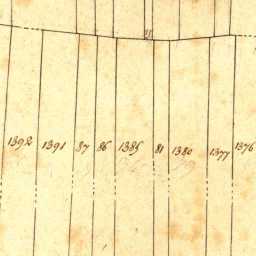 1392 1391 87 86 1385 81 1380 1377 1376